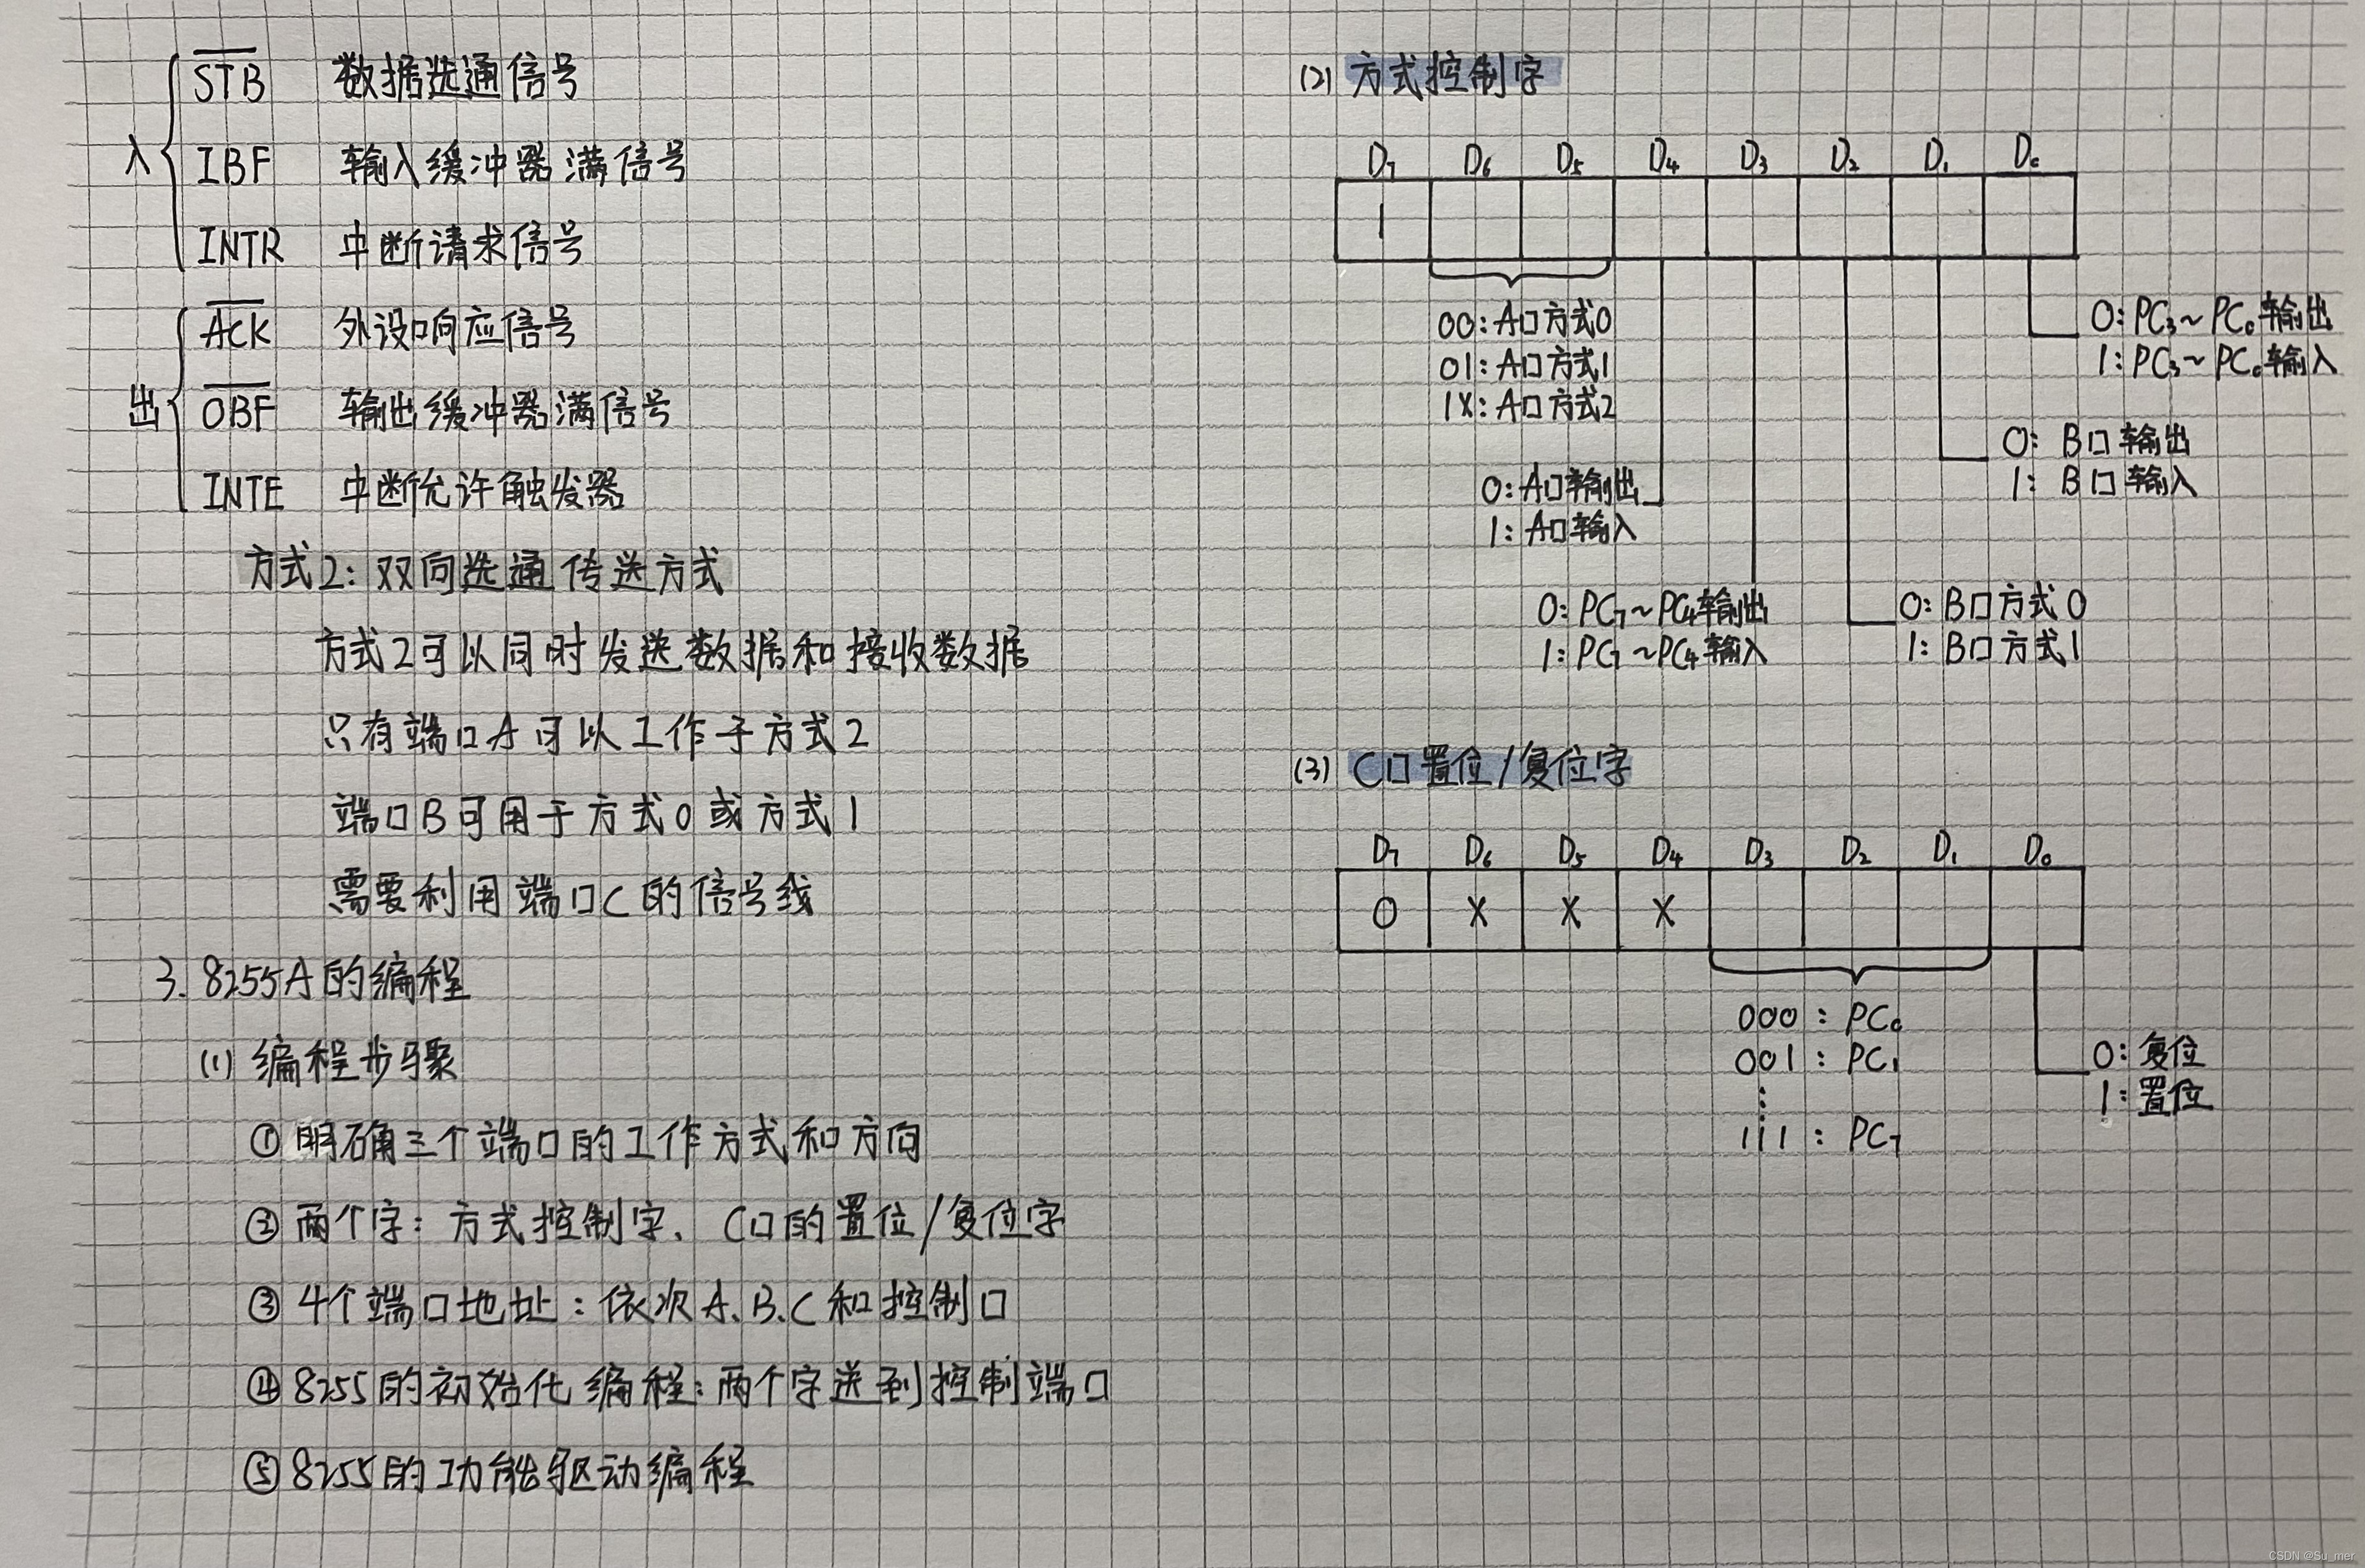 入
S̅T̅B̅ 数据选通信号
IBF 输入缓冲器满信号
INTR 中断请求信号
出
A̅C̅K̅ 外设响应信号
O̅B̅F̅ 输出缓冲器满信号
INTE 中断允许触发器
方式2:双向选通传送方式
方式2可以同时发送数据和接收数据
只有端口A可以工作于方式2
端口B可用于方式0或方式1
需要利用端口C的信号线
3. 8255A的编程
(1) 编程步骤
① 明确三个端口的工作方式和方向
② 两个字:方式控制字、C口的置位/复位字
③ 4个端口地址:依次A、B、C和控制口
④ 8255的初始化编程:两个字送到控制端口
⑤ 8255的功能驱动编程
(2) 方式控制字
D₇ D₆ D₅ D₄ D₃ D₂ D₁ D₀
1
00:A口方式0
01:A口方式1
1X:A口方式2
0:A口输出
1:A口输入
0:PC₇~PC₄输出
1:PC₇~PC₄输入
0:B口方式0
1:B口方式1
0:B口输出
1:B口输入
0:PC₃~PC₀输出
1:PC₃~PC₀输入
(3) C口置位/复位字
D₇ D₆ D₅ D₄ D₃ D₂ D₁ D₀
0 X X X
000:PC₀
001:PC₁
⋮
111:PC₇
0:复位
1:置位
CSDN @Su_mer